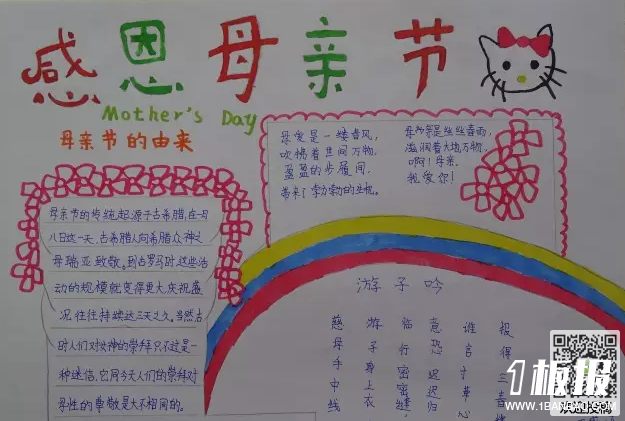 感恩母亲节
Mother's Day
母亲节的由来
母亲节的传统起源于古希腊,在一月
八日这一天,古希腊人向希腊众神之
母瑞亚致敬。到古罗马时,这些活
动的规模就变得更大,庆祝盛
况往往持续达三天之久。当然,古
时人们对女神的崇拜只不过是一
种迷信,它同今天人们的崇拜对
母性的尊敬是大不相同的。
母爱是一缕春风,
吹拂着世间万物,
盈盈的步履间,
带来了勃勃的生机。
母爱是丝丝春雨,
滋润着大地万物,
啊!母亲,
我爱你!
游子吟
慈母手中线
游子身上衣
临行密密缝
意恐迟迟归
谁言寸草心
报得三春晖
1板报
WWW.1BANBAO.COM
欢迎投稿